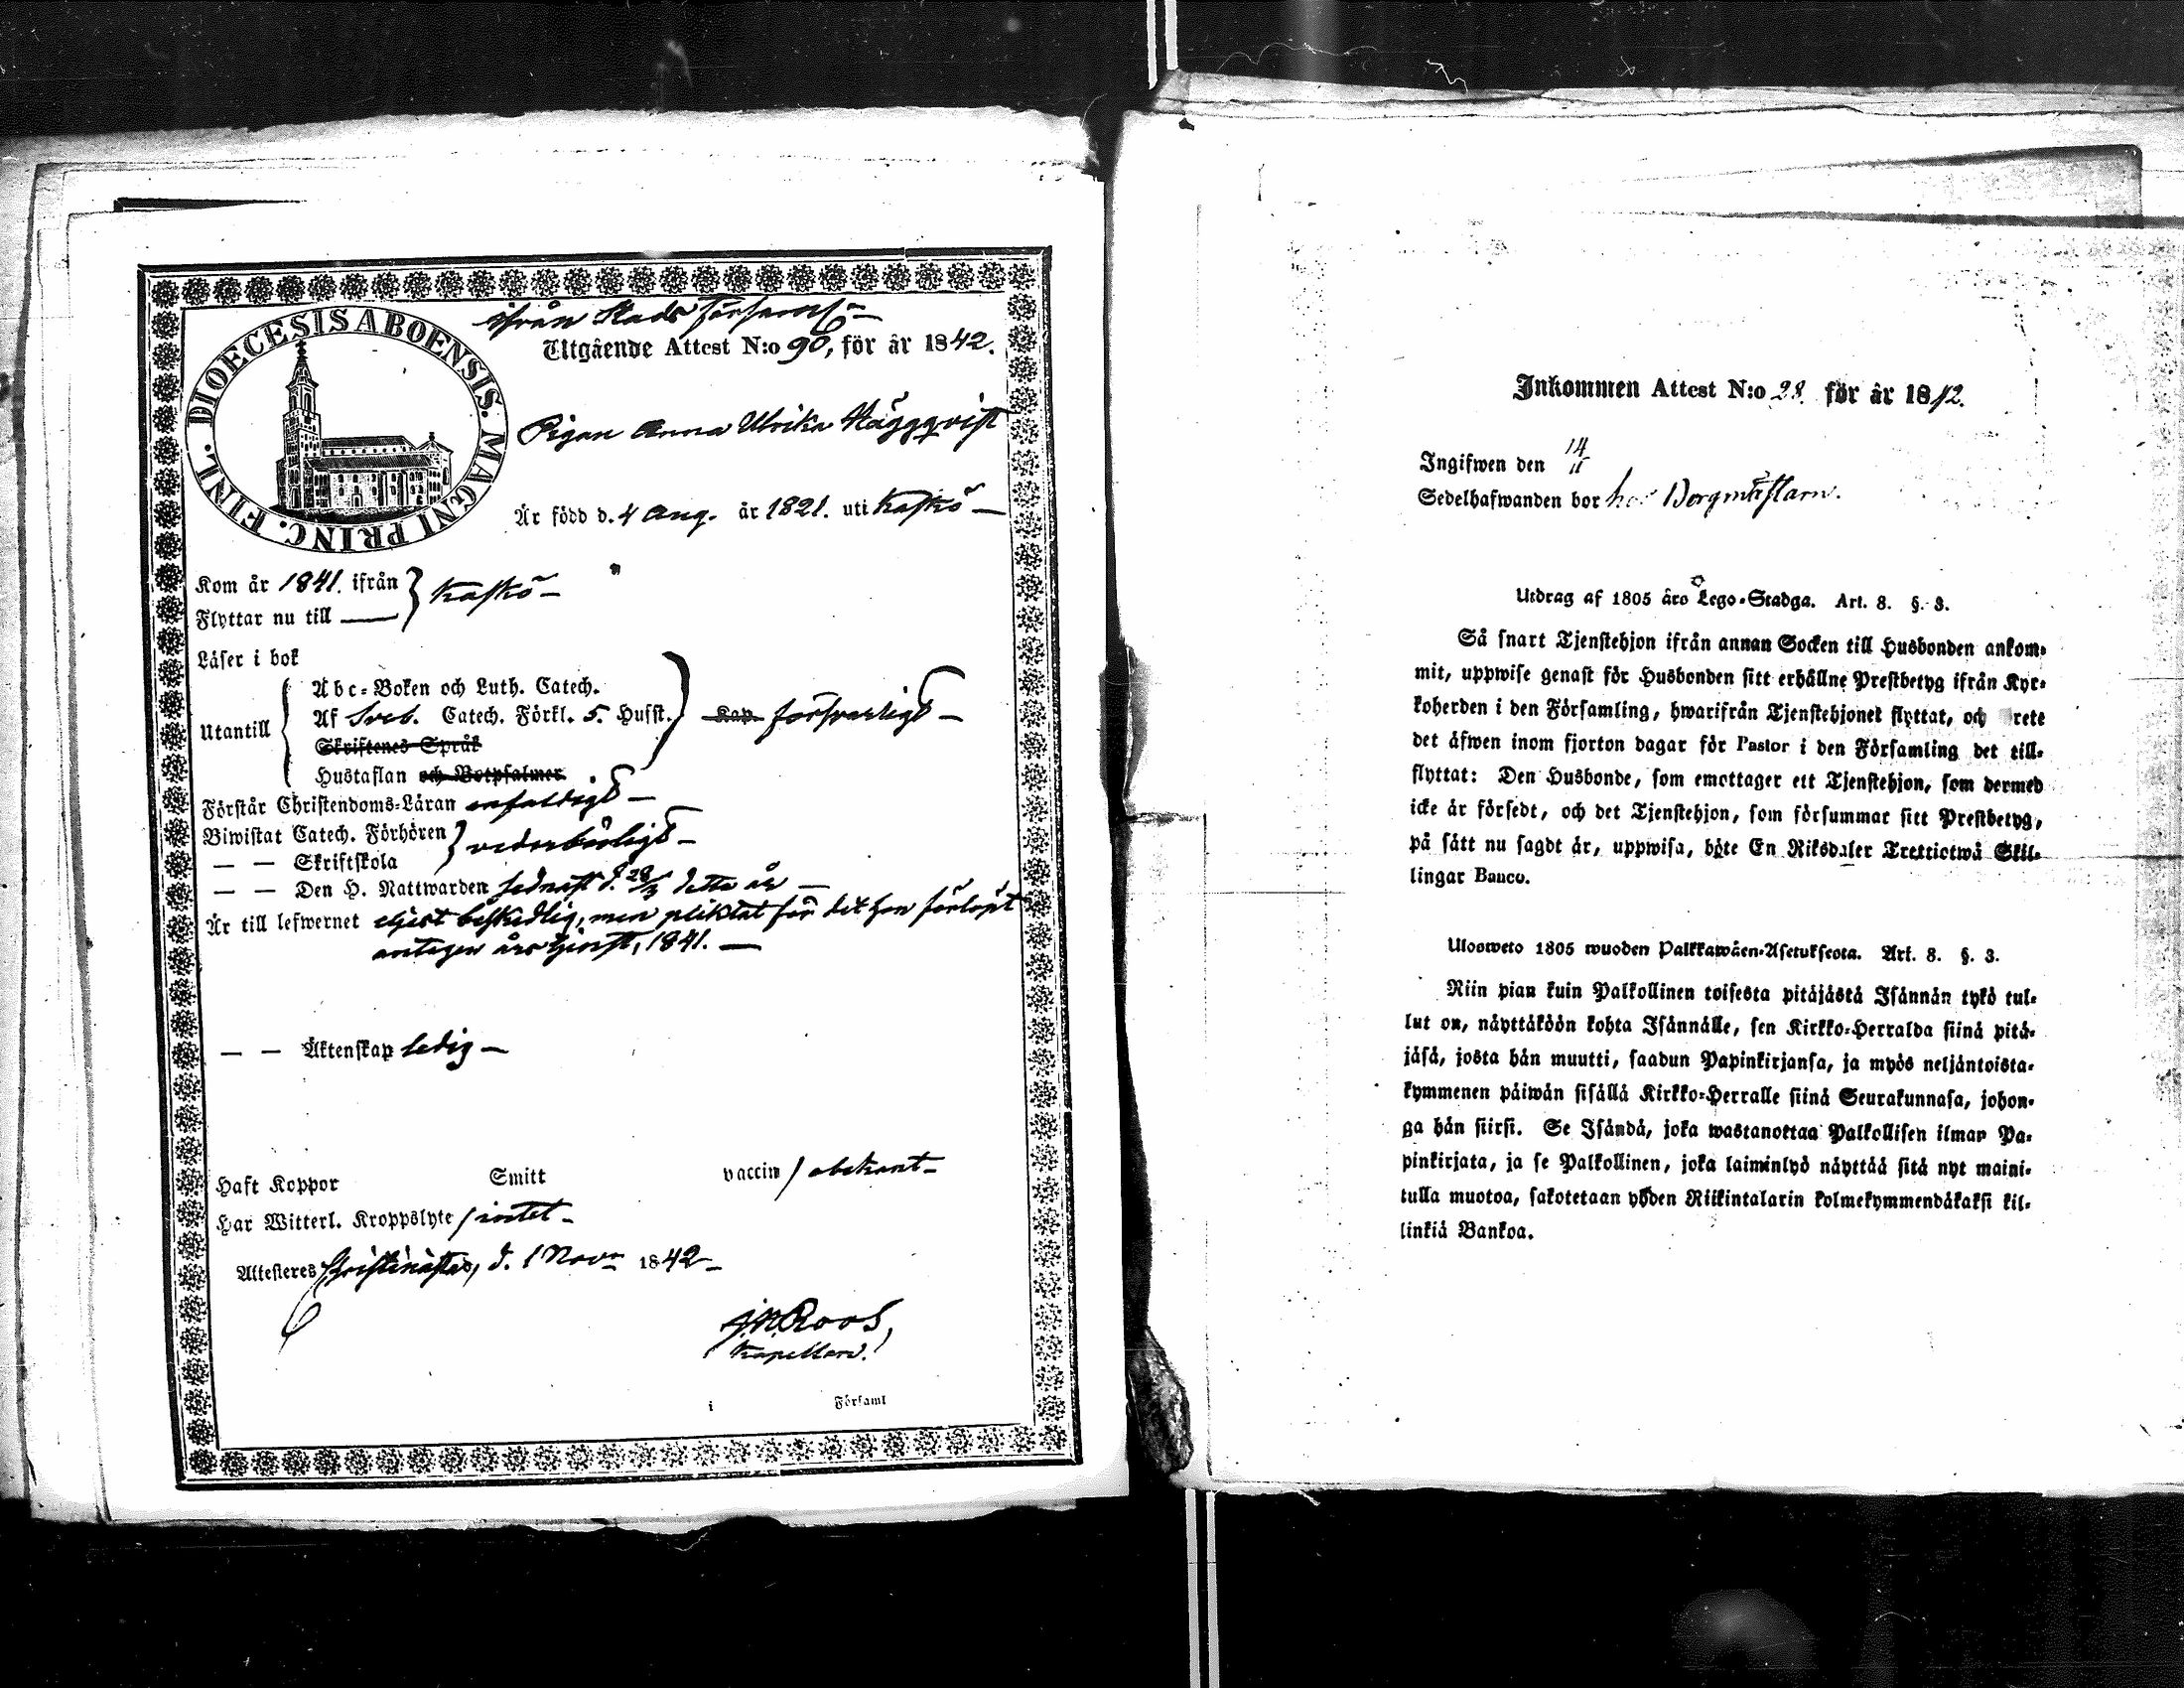 DIOECESIS ABOENSIS. MAGNI PRINC. FINL.
ifrån Stads Församl:
Utgående Attest N:o 90, för år 1842.
Pigan Anna Ulrika Häggqvist
Är född d. 4 Aug. år 1821. uti Kaskö —
Kom år 1841. ifrån } Kaskö —
Flyttar nu till —
Läser i bok
Utantill
Abc-Boken och Luth. Catech.
Af Sveb. Catech. Förkl. 5. Husst. Kap försvarligt —
Skriftenes Språk
Hustaflan och Botpsalmer
Förstår Christendoms-Läran enfaldigt —
Biwistat Catech. Förhören } vederbörligt —
— — Skriftskola
— — Den H. Nattwarden sednast d. 28/3 detta år —
Är till lefwernet eljest beskedlig, men pliktat för det hon förlöpt
antagen års tjenst, 1841. —
— — Äktenskap ledig —
Haft Koppor Smitt vaccin / obekant —
Har Witterl. Kroppslyte / intet —
Attesteres Christinæstad, d. 1 Nov:r 1842 —
J.N. Roos,
Kapellan.
i Församl
Inkommen Attest N:o 28. för år 1842.
Ingifwen den 14/11
Sedelhafwanden bor hos Borgmästarn.
Utdrag af 1805 års Lego-Stadga. Art. 8. §. 3.
Så snart Tjenstehjon ifrån annan Socken till Husbonden ankom-
mit, uppwise genast för Husbonden sitt erhållne Prestbetyg ifrån Kyr-
koherden i den Församling, hwarifrån Tjenstehjonet flyttat, och rete
det äfwen inom fjorton dagar för Pastor i den Församling det till-
flyttat: Den Husbonde, som emottager ett Tjenstehjon, som dermed
icke är försedt, och det Tjenstehjon, som försummar sitt Prestbetyg,
på sätt nu sagdt är, uppwisa, böte En Riksdaler Trettiotwå Skil-
lingar Banco.
Ulosweto 1805 wuoden Palkkawäen-Asetuksesta. Art. 8. §. 3.
Niin pian kuin Palkollinen toisesta pitäjästä Isännän tykö tul-
lut on, näyttäköön kohta Isännälle, sen Kirkko-Herralda siinä pitä-
jäsä, josta hän muutti, saadun Papinkirjansa, ja myös neljäntoista-
kymmenen päiwän sisällä Kirkko-Herralle siinä Seurakunnasa, johon-
ga hän siirsi. Se Isändä, joka wastanottaa Palkollisen ilman Pa-
pinkirjata, ja se Palkollinen, joka laiminlyö näyttää sitä nyt maini-
tulla muotoa, sakotetaan yhden Riikintalarin kolmekymmendäkaksi kil-
linkiä Bankoa.